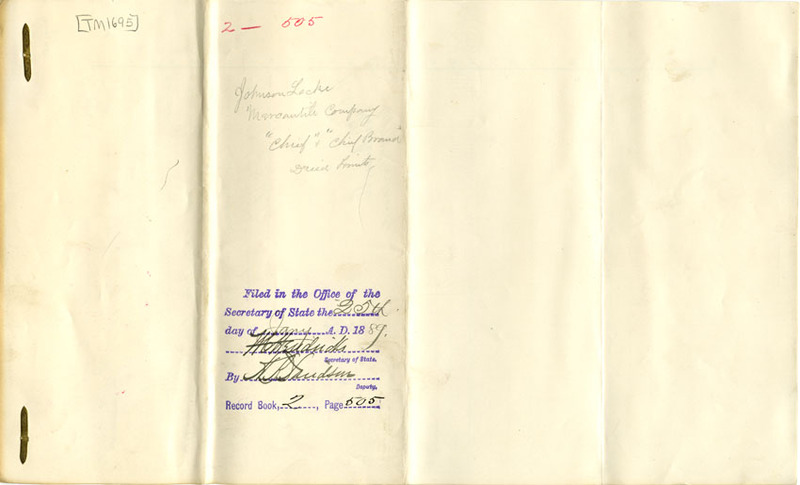 [TM1695]
2 — 505
Johnson Locke
Mercantile Company
"Chief" & "Chief Brand"
Dried Fruits
Filed in the Office of the
Secretary of State the 25th
day of Jany A. D. 1889.
Secretary of State.
By
Deputy.
Record Book, 2, Page 505